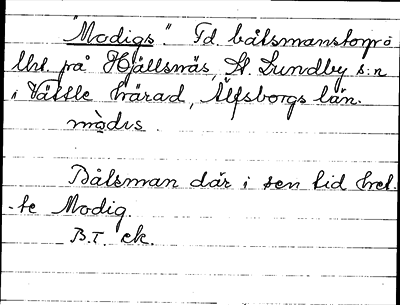 "Modigs". Fd. båtsmanstorp å
lht. på Hjällsnäs, St. Lundby s:n
i Vättle härad, Älfsborgs län.
mòdıs.
Båtsman där i sen tid het-
-te Modig.
B.T. ek.